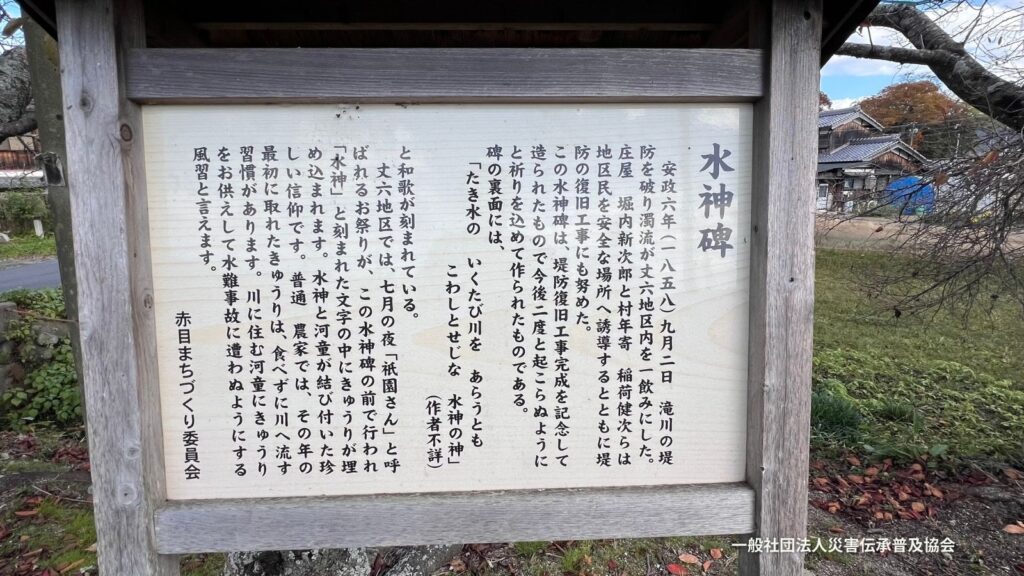 水神碑
安政六年(一八五八)九月二日 滝川の堤
防を破り濁流が丈六地区内を一飲みにした。
庄屋 堀内新次郎と村年寄 稲荷健次らは
地区民を安全な場所へ誘導するとともに堤
防の復旧工事にも努めた。
この水神碑は、堤防復旧工事完成を記念して
造られたもので今後二度と起こらぬように
と祈りを込めて作られたものである。
碑の裏面には、
「たき水の いくたび川を あらうとも
こわしとせじな 水神の神」
(作者不詳)
と和歌が刻まれている。
丈六地区では、七月の夜「祇園さん」と呼
ばれるお祭りが、この水神碑の前で行われ
「水神」と刻まれた文字の中にきゅうりが埋
め込まれます。水神と河童が結び付いた珍
しい信仰です。普通 農家では、その年の
最初に取れたきゅうりは、食べずに川へ流す
習慣があります。川に住む河童にきゅうり
をお供えして水難事故に遭わぬようにする
風習と言えます。
赤目まちづくり委員会
一般社団法人災害伝承普及協会